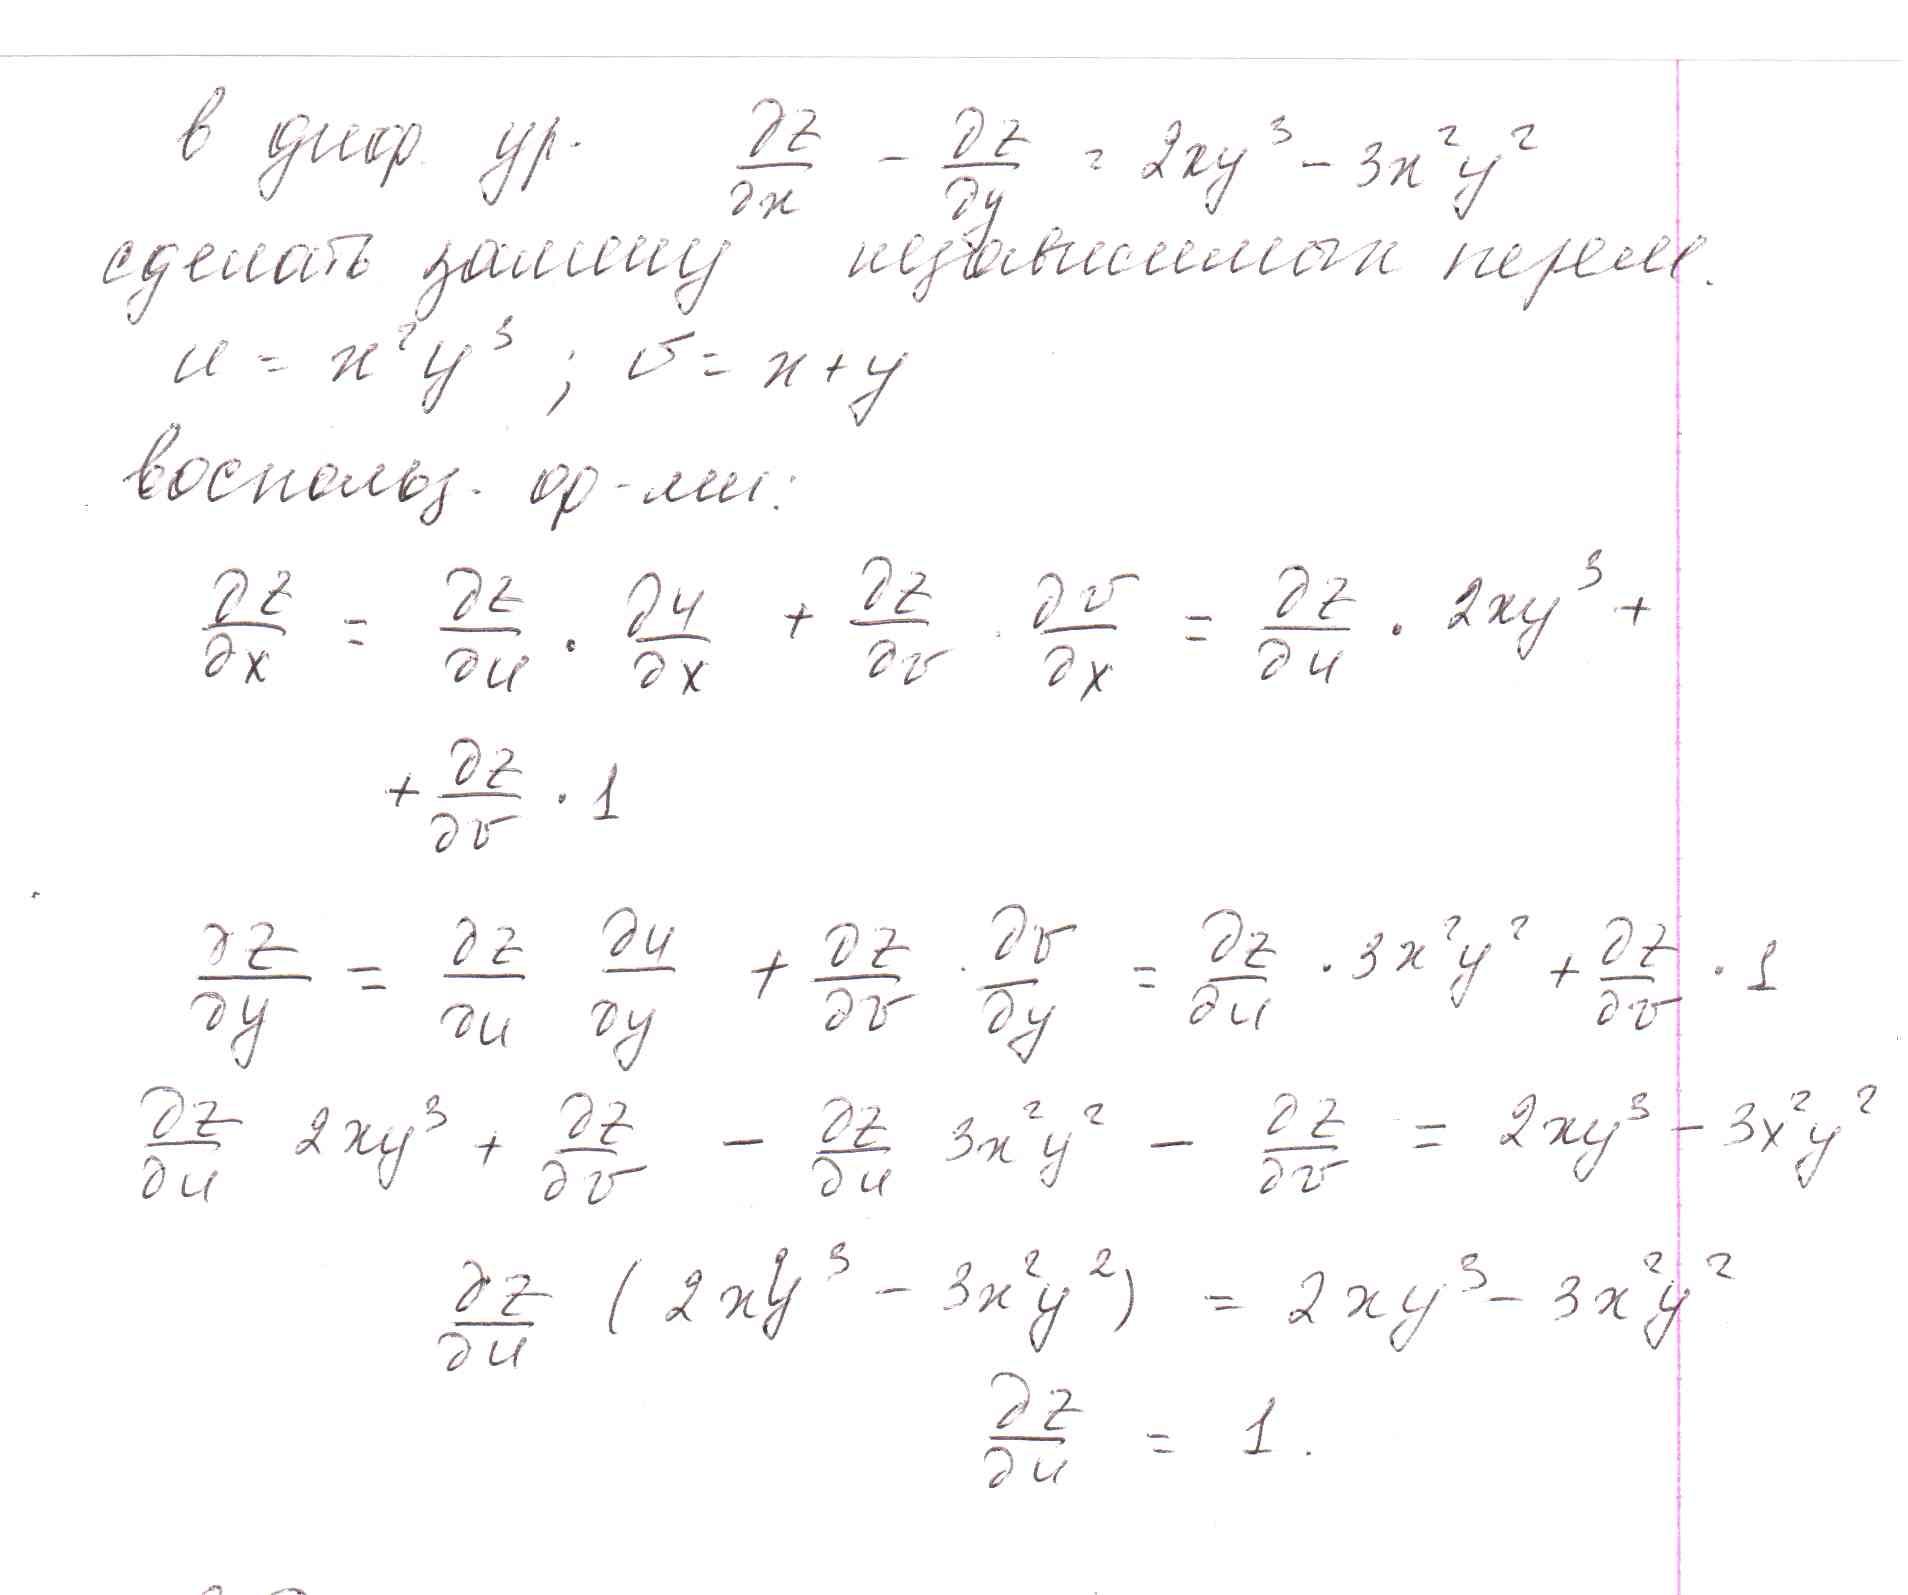 в диф. ур. ∂z/∂x - ∂z/∂y = 2xy³ - 3x²y²
сделать замену независимых перем.
u = x²y³ ; v = x + y
воспольз. ф-ми:
∂z/∂x = ∂z/∂u · ∂u/∂x + ∂z/∂v · ∂v/∂x = ∂z/∂u · 2xy³ +
+ ∂z/∂v · 1
∂z/∂y = ∂z/∂u ∂u/∂y + ∂z/∂v · ∂v/∂y = ∂z/∂u · 3x²y² + ∂z/∂v · 1
∂z/∂u 2xy³ + ∂z/∂v - ∂z/∂u 3x²y² - ∂z/∂v = 2xy³ - 3x²y²
∂z/∂u (2xy³ - 3x²y²) = 2xy³ - 3x²y²
∂z/∂u = 1.